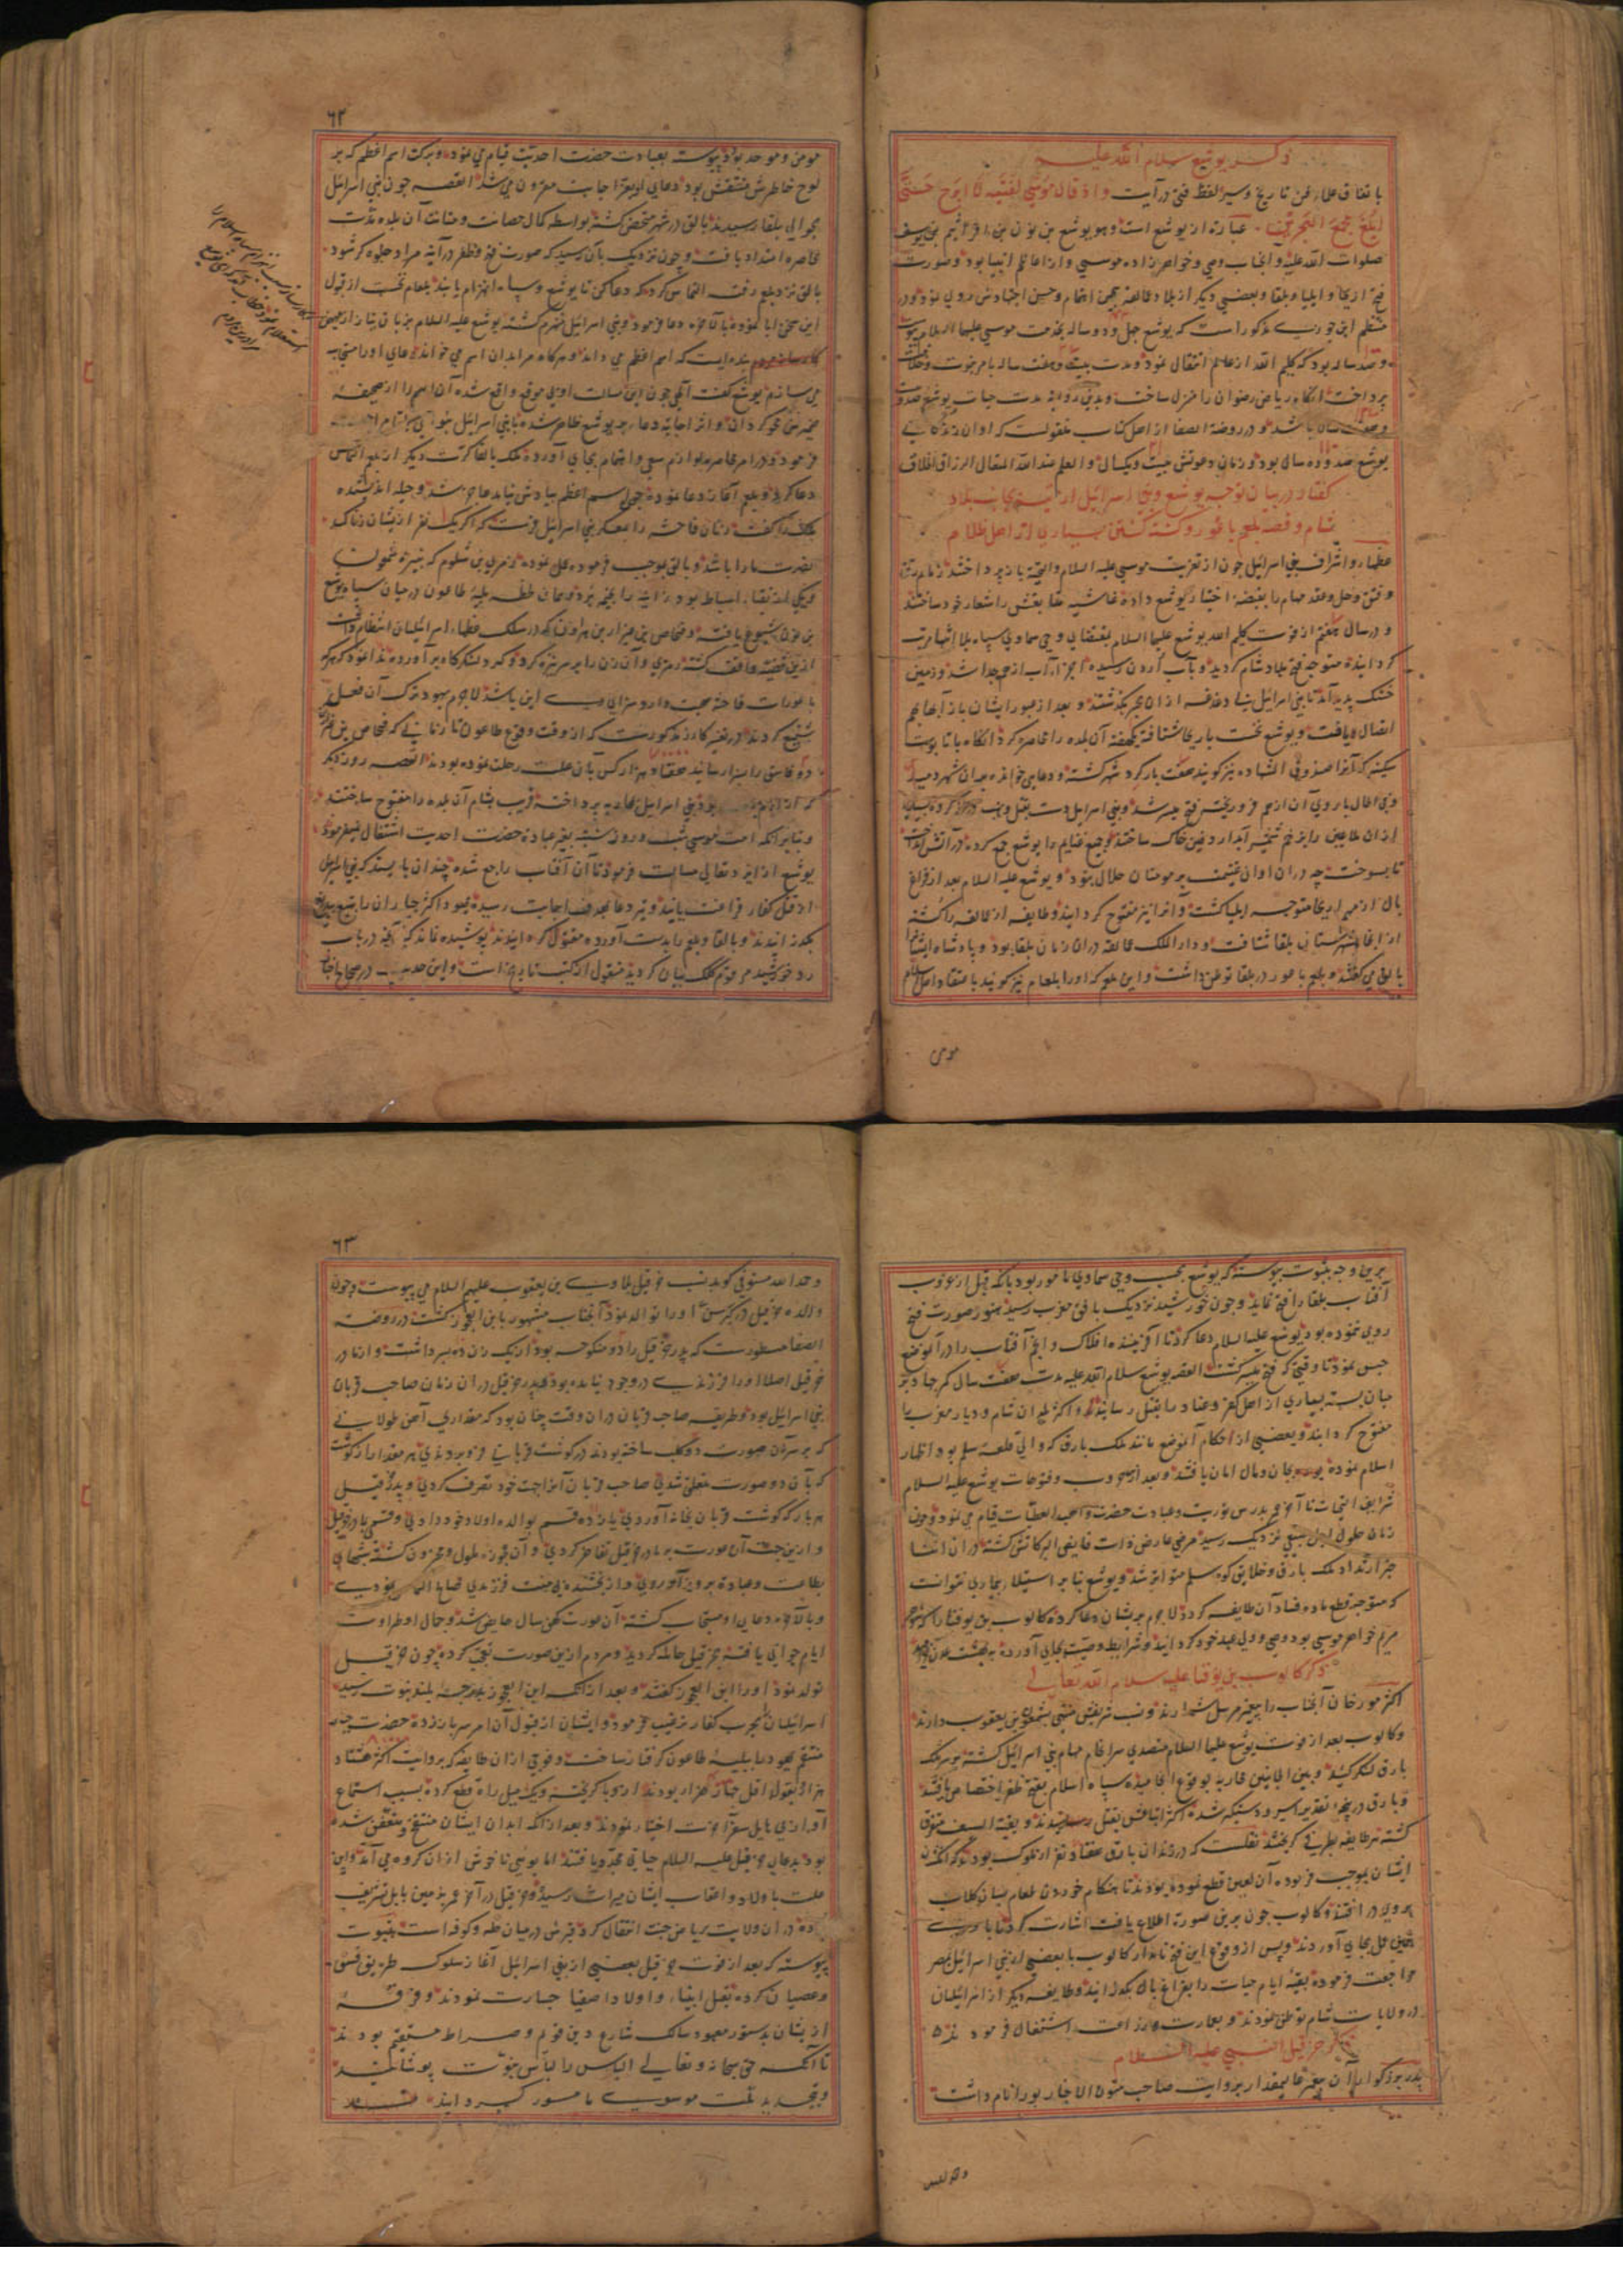 ذکر یوشع سلام الله علیه
باتفاق علماء فن تاریخ و سیر لفظ فتی در آیت و اذ قال موسی لفتیه لا ابرح حتی
ابلغ مجمع البحرین عبارة از یوشع است و هو یوشع بن نون بن افرائیم بن یوسف
صلوات الله علیه و انجناب وصی و خواهرزاده موسی و از اعاظم انبیا بود و صورت
فتح اریحا و ایلیا و بلقا و بعضی دیگر از بلاد عمالقه بیمن اهتمام و حسن اجتهادش روی نمود و در
منتظم ابن جوزی مذکور است که یوشع چهل و دو ساله بخدمت موسی علیهما السلام پیوست
و صد ساله بود که کلیم الله از عالم انتقال نمود و مدت بیست و هفت سال بامر نبوت و خلافت
پرداخت انگاه ریاض رضوان را منزل ساخت و بدین روایة مدت حیات یوشع صد و بیست
و هفت سال باشد و در روضة الصفا از اهل کتاب منقولست که اوان زندگانی
یوشع صد و ده سال بود و زمان دعوتش بیست و یکسال و العلم عند الله المتعال الرزاق الخلاق
گفتار در بیان توجه یوشع و بنی اسرائیل از تیه بجانب بلاد
شام و قصه بلعم باعور و کشته گشتن بسیاری از اهل ظلام
عظما و اشراف بنی اسرائیل چون از تعزیت موسی علیه السلام و التحیة باز پرداختند زمام رتق
و فتق و حل و عقد مهام را بقبضه اختیار یوشع داده غاشیه متابعتش را شعار خود ساختند
و در سال هفتم از فوت کلیم الله یوشع علیهما السلام بمقتضای وحی سماوی سپاه بلا انتها مرتب
گردانیده متوجه فتح بلاد شام گردید و بآب اردن رسیده اجزاء آب از هم جدا شد و زمین
خشک پدید آمد تا بنی اسرائیل بی دغدغه از ان بحر بگذشتند و بعد از عبور ایشان باز آبها بهم
اتصال یافت و یوشع نخست باریحا شتافته یکهفته آن بلده را محاصره کرد انگاه با تابوت
سکینه که آنرا صندوق الشهاده نیز گویند هفت بار گرد شهر گشته و دعایی خوانده بدان شهر دمید
و فی الحال باروی آن از هم فرو ریخته فتح میسر شد و بنی اسرائیل دست بقتل و نهب دراز کرده بسیاری
از ان ملاعین را بزخم شمشیر آبدار دفین خاک ساختند و جمیع غنایم را یوشع جمع کرده در آتش انداخت
تا بسوخت چه در ان اوان غنیمت بر مومنان حلال نبود و یوشع علیه السلام بعد از فراغ
بال از مهم اریحا متوجه ایلیا گشت و انرا نیز مفتوح گردانید و طایفه از عمالقه را کشته
از انجا بشهرستان بلقا شتافت و دار الملک عمالقه در ان زمان بلقا بود و پادشاه ایشانرا
بالق می گفتند و بلعم باعور در بلقا توطن داشت و این بلعم که اورا بلعام نیز گویند باعتقاد اهل اسلام
مومن
٦٢
مومن و موحد بود و پیوسته بعبادت حضرت احدیت قیام می نمود و ببرکت اسم اعظم که بر
لوح خاطرش منتقش بود دعای او بعز اجابت مقرون می شد القصه چون بنی اسرائیل
بحوالی بلقا رسیدند بالق در شهر متحصن گشته بواسطه کمال حصانت و متانت آن بلده مدت
محاصره امتداد یافت و چون نزدیک بآن رسید که صورت فتح و ظفر در آینه مراد جلوه گر شود
بالق نزد بلعم رفته التماس کرد که دعا کن تا یوشع و سپاه انهزام یابند بلعام نخست از قبول
این سخن ابا نموده بالآخره دعا فرمود و بنی اسرائیل منهزم گشته یوشع علیه السلام بزبان نیاز از مفیض
بنده ایست که اسم اعظم می داند و هرگاه مرا بدان اسم می خواند دعای اورا مستجاب
می سازم یوشع گفت الهی چون این مسالت او بی موقع واقع شده آن اسم را از صحیفه
ضمیرش محو گردان و اثر اجابة دعاء بر یوشع ظاهر شده با بنی اسرائیل
فرمود و در امر محاصره لوازم سعی و اهتمام بجای آورده ملک بلقا کرت دیگر از بلعم التماس
دعا کرد و بلعم آغاز دعا نموده چون اسم اعظم بیادش نیامد عاجز شد و حیله اندیشیده
ملک را گفت زنان فاحشه را بمعسکر بنی اسرائیل فرست که اگر یک نفر از یشان زنا کند
نصرت ما را باشد و بالق بموجب فرموده عمل نموده و زمری بن شلوم که نبیره شمعون
و یکی از نقباء اسباط بود زانیه را بخیمه برد و همان لحظه بلیه طاعون در میان سپاه یوشع
بن نون شیوع یافته و فنحاص بن عیزار بن هارون که در سلک عظماء اسرائیلیان انتظام داشت
ازین قضیه واقف گشته زمری و آن زن را بر سر نیزه کرد و گرد لشکرگاه برآورده ندا نمود که هر که
با عورات فاحشه صحبت دارد سزای وی این باشد لاجرم یهود ترک آن فعل
شنیع کردند و در تفسیر گازر مذکورست که از وقت وقوع طاعون تا زمانی که فنحاص بن عیزار
دو فاسق را بسزا رسانید هفتاد هزار کس بآن علت رحلت نموده بودند القصه روز دیگر
بنی اسرائیل بمحاربه پرداخته قریب بشام آن بلده را مفتوح ساختند
و بنابر آنکه امت موسی شب و روز شنبه بغیر عبادة حضرت احدیت اشتغال نمی فرمود
یوشع از ایزد تعالی مسالت فرمود تا آن آفتاب راجع شده چندان بایستد که بنی اسرائیل
از قتل کفار فراغت یابند و تیر دعا بهدف اجابت رسیده یهود اکثر جباران را بتیغ بیدریغ
بگذرانیدند و بالق و بلعم را بدست آورده مقتول گردانیدند پوشیده نماند که آنچه در باب
رد خورشید مرقوم کلک بیان گردید منقول از کتب تاریخ است و این حدیث در صحاح اخبار
برین وجه بثبوت پیوسته که یوشع بحسب وحی سماوی مامور بود بآنکه قبل از غروب
آفتاب بلقا را فتح نماید و چون خورشید نزدیک بافق مغرب رسید هنوز صورت فتح
روی ننموده بود یوشع علیه السلام دعا کرد تا آفریننده افلاک و انجم آفتاب را در آنموضع
حبس نمود تا وقتی که فتح میسر گشت القصه یوشع سلام الله علیه مدت هفت سال کمر جهاد بر
میان بسته بسیاری از اهل کفر و عناد را بقتل رسانید و اکثر بلدان شام و دیار مغرب را
مفتوح گردانید و بعضی از حکام آنموضع مانند ملک بارق که والی قلعه سلم بود اظهار
اسلام نموده بجان و مال امان یافتند و بعد از حروب و فتوحات یوشع علیه السلام
شرایف التحیات تا آخر عمر بدرس توریت و عبادت حضرت واهب العطیات قیام می نمود و چون
زمان حلول اجل طبیعی نزدیک رسید مرضی عارض ذات فایض البرکاتش گشته در ان اثنا
خبر ارتداد ملک بارق و خلایق کوه سلم متواتر شد و یوشع بنا بر استیلاء بیماری نتوانست
که متوجه قطع ماده فساد آن طایفه گردد لاجرم بریشان دعا کرده کالوب بن یوفنا را که شوهر
مریم خواهر موسی بود وصی و ولی عهد خود گردانید و شرایط وصیت بجای آورده به بهشت عدن
ذکر کالوب بن یوفنا علیه سلام الله تعالی
اکثر مورخان آنجناب را پیغمبر مرسل شمارند و نسب شریفش منتهی بشمعون بن یعقوب دارند
و کالوب بعد از فوت یوشع علیهما السلام متصدی سرانجام مهام بنی اسرائیل گشته بر سر ملک
بارق لشکر کشید و بین الجانبین محاربه بوقوع انجامیده سپاه اسلام بفتح و ظفر اختصاص یافتند
و بارق در پنجه تقدیر اسیر و دستگیر شده اکثر اتباعش بقتل رسیدند و بقیة السیف متفرق
گشته هر طایفه بطرفی گریختند نقلست که در زندان بارق هفتاد نفر از ملوک بودند که انگشتان
ایشان بموجب فرموده آن لعین قطع نموده بودند تا هنگام خوردن طعام بسان کلاب
بروی در افتند و کالوب چون برین صورة اطلاع یافت اشارت کرد تا با وی
همین عمل بجای آوردند و پس از وقوع این فتح نامدار کالوب با بعضی از بنی اسرائیل بمصر
مراجعت فرموده بقیه ایام حیات را بفراغ بال بگذرانید و طایفه دیگر از اسرائیلیان
در ولایات شام توطن نمودند و بعمارت و زراعت اشتغال فرمودند
ذکر حزقیل النبی علیه السلام
پدر بزرگوار آن پیغمبر عالیمقدار بروایت صاحب متون الاخبار بورا نام داشت
٦٣
و حمد الله مستوفی گوید نسب حزقیل بلاوی بن یعقوب علیهم السلام می پیوست و چون
والده حزقیل در کبر سن اورا تولد نمود آنجناب مشهور بابن العجوز گشت و در روضة
الصفا مسطورست که پدر حزقیل را دو منکوحه بود از یک زن ده پسر داشت و از مادر
حزقیل اصلا اورا فرزندی در وجود نیامده بود و پدر حزقیل در ان زمان صاحب قربان
بنی اسرائیل بود و طریقه صاحب قربان در ان وقت چنان بود که مقداری آهن طولانی
که بر سر آن صورت دو کلب ساخته بودند در گوشت قربانی فرو بردندی هر مقدار از گوشت
که بآن دو صورت متعلق شدی صاحب قربان آنرا جهت خود تصرف کردی و پدر حزقیل
هر بار که گوشت قربان بخانه آوردی یازده قسم بوالده اولاد خود دادی و قسمی بمادر حزقیل
و ازین جهت آن عورت بر مادر حزقیل تفاخر کردی و آن عجوزه ملول و محزون گشته شبهای
بطاعت و عبادة بروز آوردی و از بخشنده بی منت فرزندی صالح التماس نمودی
و بالآخره دعای او مستجاب گشته آن عورت کهن سال حایض شد و جمال او طراوت
ایام جوانی یافته بحزقیل حامله گردید و مردم ازین صورت تعجب کرده چون حزقیل
تولد نمود اورا ابن العجوز گفتند و بعد از انکه این ابن العجوز بمرتبه بلند نبوت رسید
اسرائیلیان را بحرب کفار ترغیب فرمود و ایشان از قبول آن امر سر باز زده حضرت جبار
منتقم یهود را ببلیه طاعون گرفتار ساخت و فوجی از ان طایفه که بروایت اکثر هشتاد
هزار و بقول اقل چهار هزار بودند از وبا گریخته و یک میل راه قطع کرده بسبب استماع
آوازی هایل سفر آخرت اختیار نمودند و بعد از انکه ابدان ایشان منتفخ و متعفن شده
بود بدعای حزقیل علیه السلام حیاتی مجدد یافتند اما بوئی ناخوش از ان گروه می آمد و این
علت باولاد و اعقاب ایشان میراث رسید و حزقیل در آخر عمر بزمین بابل تشریف
برده در ان ولایت بریاض جنت انتقال کرد قبرش در میان حله و کوفه است و بثبوت
پیوسته که بعد از فوت حزقیل بعضی از بنی اسرائیل آغاز سلوک طریق فسق
و عصیان کرده بقتل انبیاء و اولاد اصفیا جسارت نمودند و فرقه
از یشان بدستور معهود سالک شارع دین قویم و صراط مستقیم بودند
تا آنکه حق سبحانه و تعالی الیاس را لباس نبوت پوشانید
و بتجدید ملت موسوی مامور گردانید